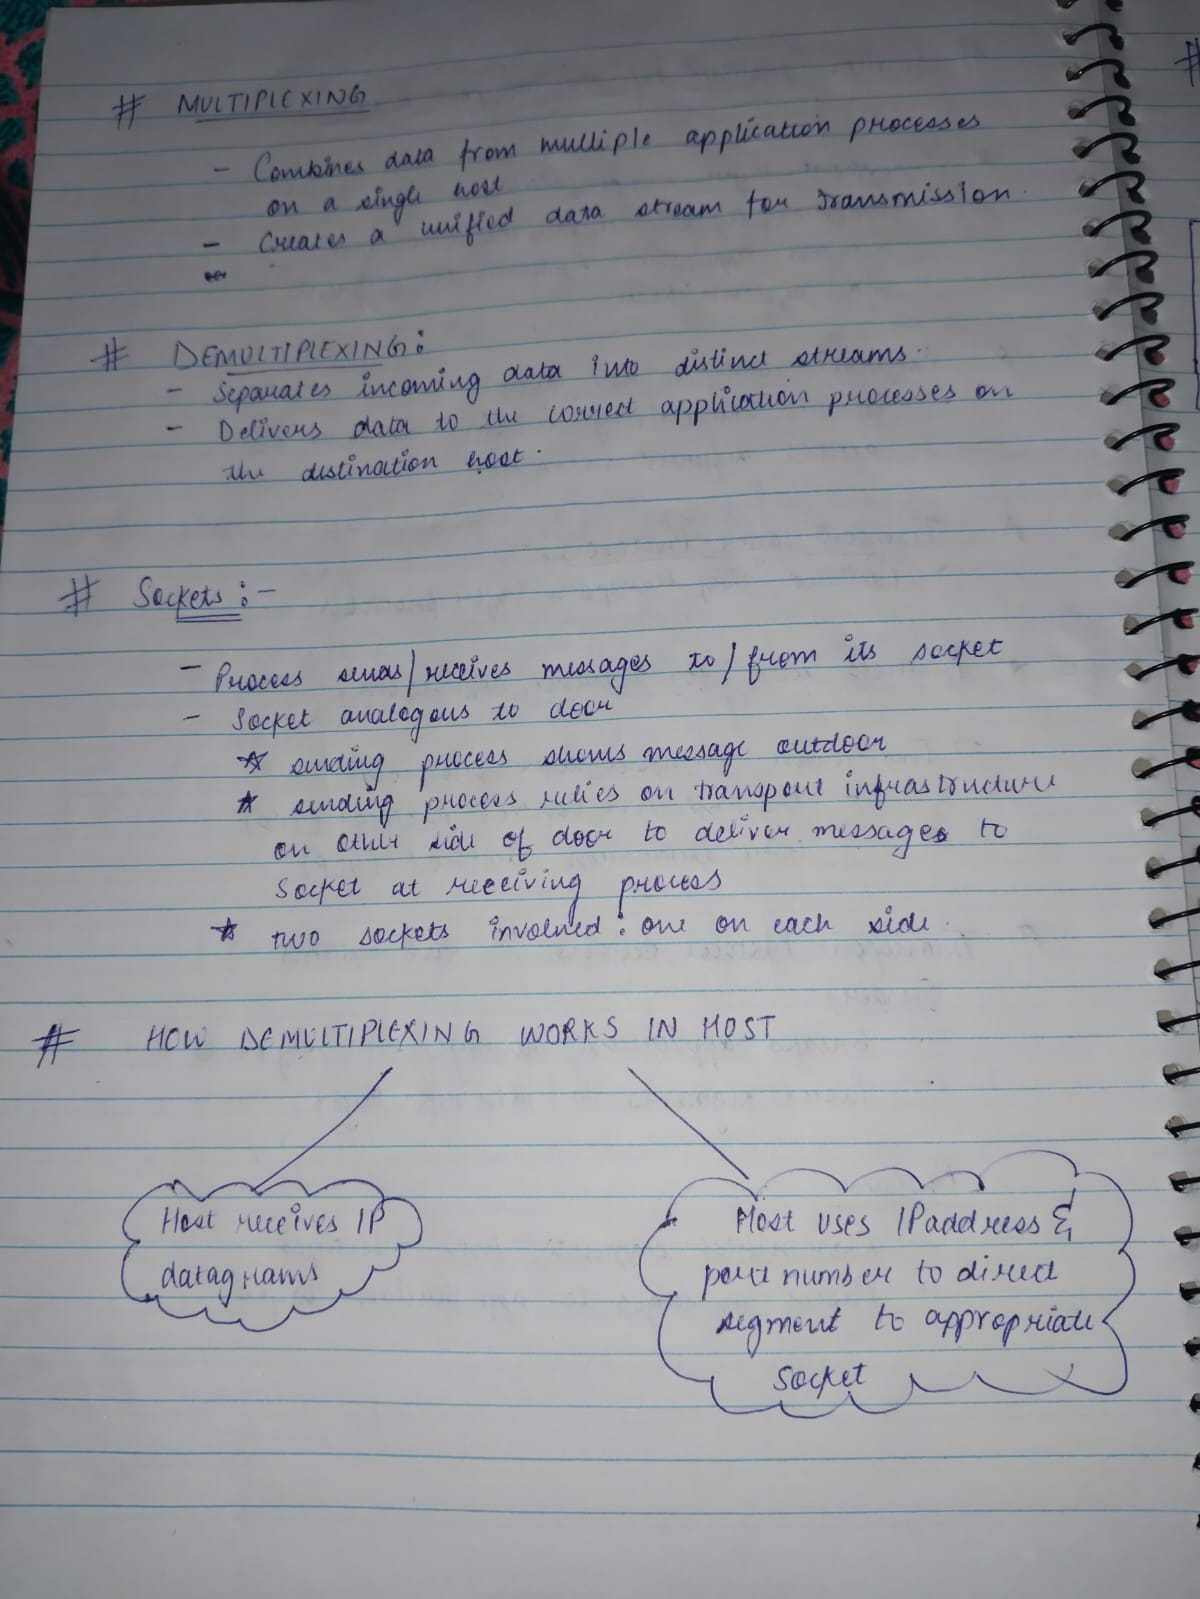 # MULTIPLEXING
- Combines data from multiple application processes
on a single host
- Creates a unified data stream for transmission.
# DEMULTIPLEXING:
- Separates incoming data into distinct streams.
- Delivers data to the correct application processes on
the destination host.
# Sockets :-
- Process sends/receives messages to/from its socket
- Socket analogous to door
* sending process shows message outdoor
* sending process relies on transport infrastructure
on other side of door to deliver messages to
Socket at receiving process
* two sockets involved: one on each side.
# HOW DEMULTIPLEXING WORKS IN HOST
Host receives IP
datagrams
Host uses IP address &
port number to direct
segment to appropriate
Socket
#